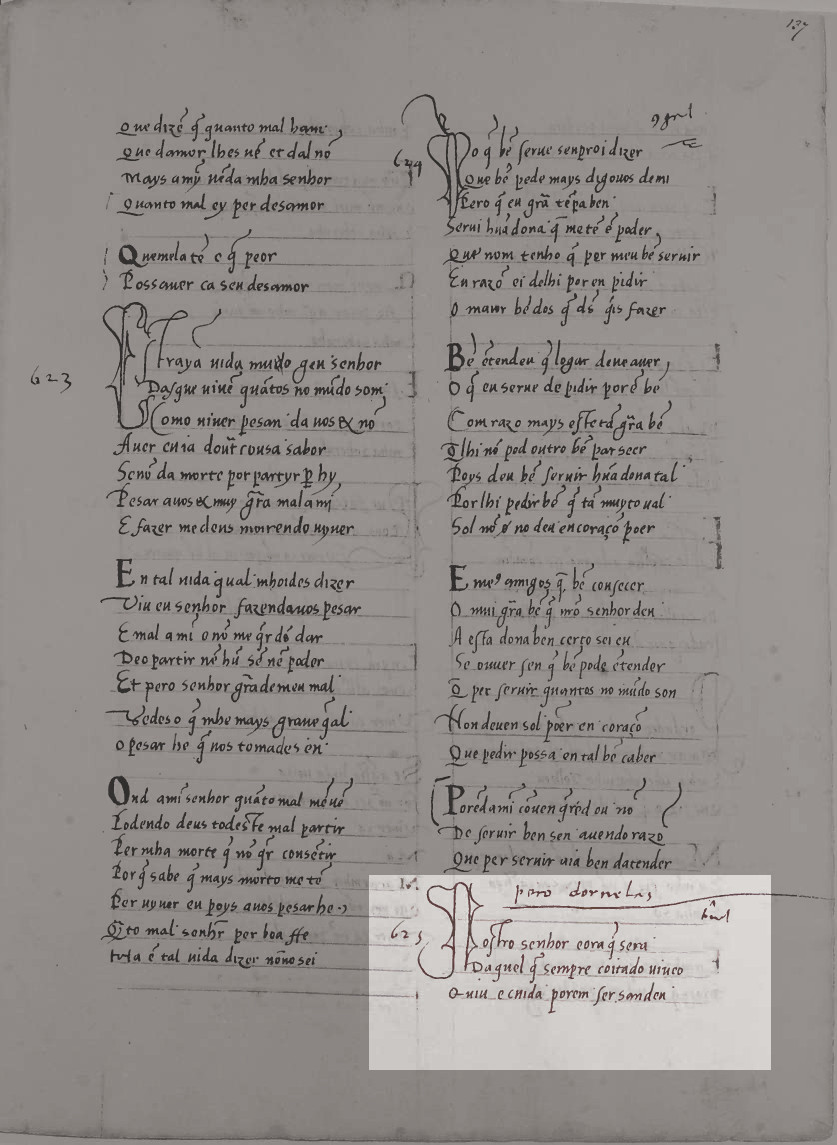 137
Que dizẽ q̃ quanto mal ham
Que damor lhes uẽ et dal nõ
Mays amỹ uẽda mha senhor
Quanto mal ey per desamor
Quemela tẽ e q̃ peor
Possauer ca seu desamor
623
Estraya uida muido geu senhor
Dasque uiuẽ quãtos no mũdo som
Como uiuer pesan da uos & nõ
Auer cuia doutᷓ cousa sabor
Senõ da morte por partyr ꝑ hy
Pesar auos & muy gr̃a mal ami
E fazer me deus moirendo uyuer
En tal uida qual mhoides dizer
Viu eu senhor fazendauos pesar
E mal a mĩ o nõ me q̃r dŝ dar
Deo partir nẽ hũ sẽ nẽ poder
Et pero senhor gr̃ademeu mal
Vedes o q̃ mhe mays graue q̃al
o pesar he q̃ uos tomades en
Ond ami senhor quãto mal me uẽ
Podendo deus todeste mal partir
Per mha morte q̃ nõ q̃r consẽtir
Por q̃ sabe q̃ mays morto me tẽ
Per uyuer eu poys auos pesar he
Q̃to mal senhr̃ per boa ffe
ẽ tal uida dizer nõno sei
624
Po q̃ bẽ serue senproi dizer
Que bẽ pede mays digouos de mi
Pero q̃ eu gr̃a tẽpa ben
Serui hũa dona q̃ me tẽ ẽ poder
Que nom tenho q̃ per meu bẽ seruir
En razõ ei delhi por en pidir
O maior bẽ dos q̃ dŝ q̃is fazer
Bẽ ẽtendeu q̃ logar deue auer
O q̃ eu serue de pidir porẽ bẽ
Com razo mays este tã gr̃a bẽ
Qlhi nõ pod outro bẽ par seer
Poys deu bẽ seruir hũa dona tal
Por lhi pedir bẽ q̃ tã muyto ual
Sol nõ o no deu en coraçõ poer
E meꝰ amigos q̃ bẽ conseçer
O mui gr̃a bẽ q̃ nr̃o senhor deu
A esta dona ben çerto sei eu
Se ouuer sen q̃ bẽ pode ẽtender
Q̃ per seruir quantos no mũdo son
Non deuen sol põer en coraçõ
Que pedir possa en tal bẽ caber
Porẽ dami cõuen q̃r q̃d ou nõ
De seruir ben sen auendo razo
Que per seruir aia ben datender
pero dornelas
625
Nostro senhor e ora q̃ sera
Daquel q̃ sempre coitado uiueo
Q uiu e cuida porem ser sandeu